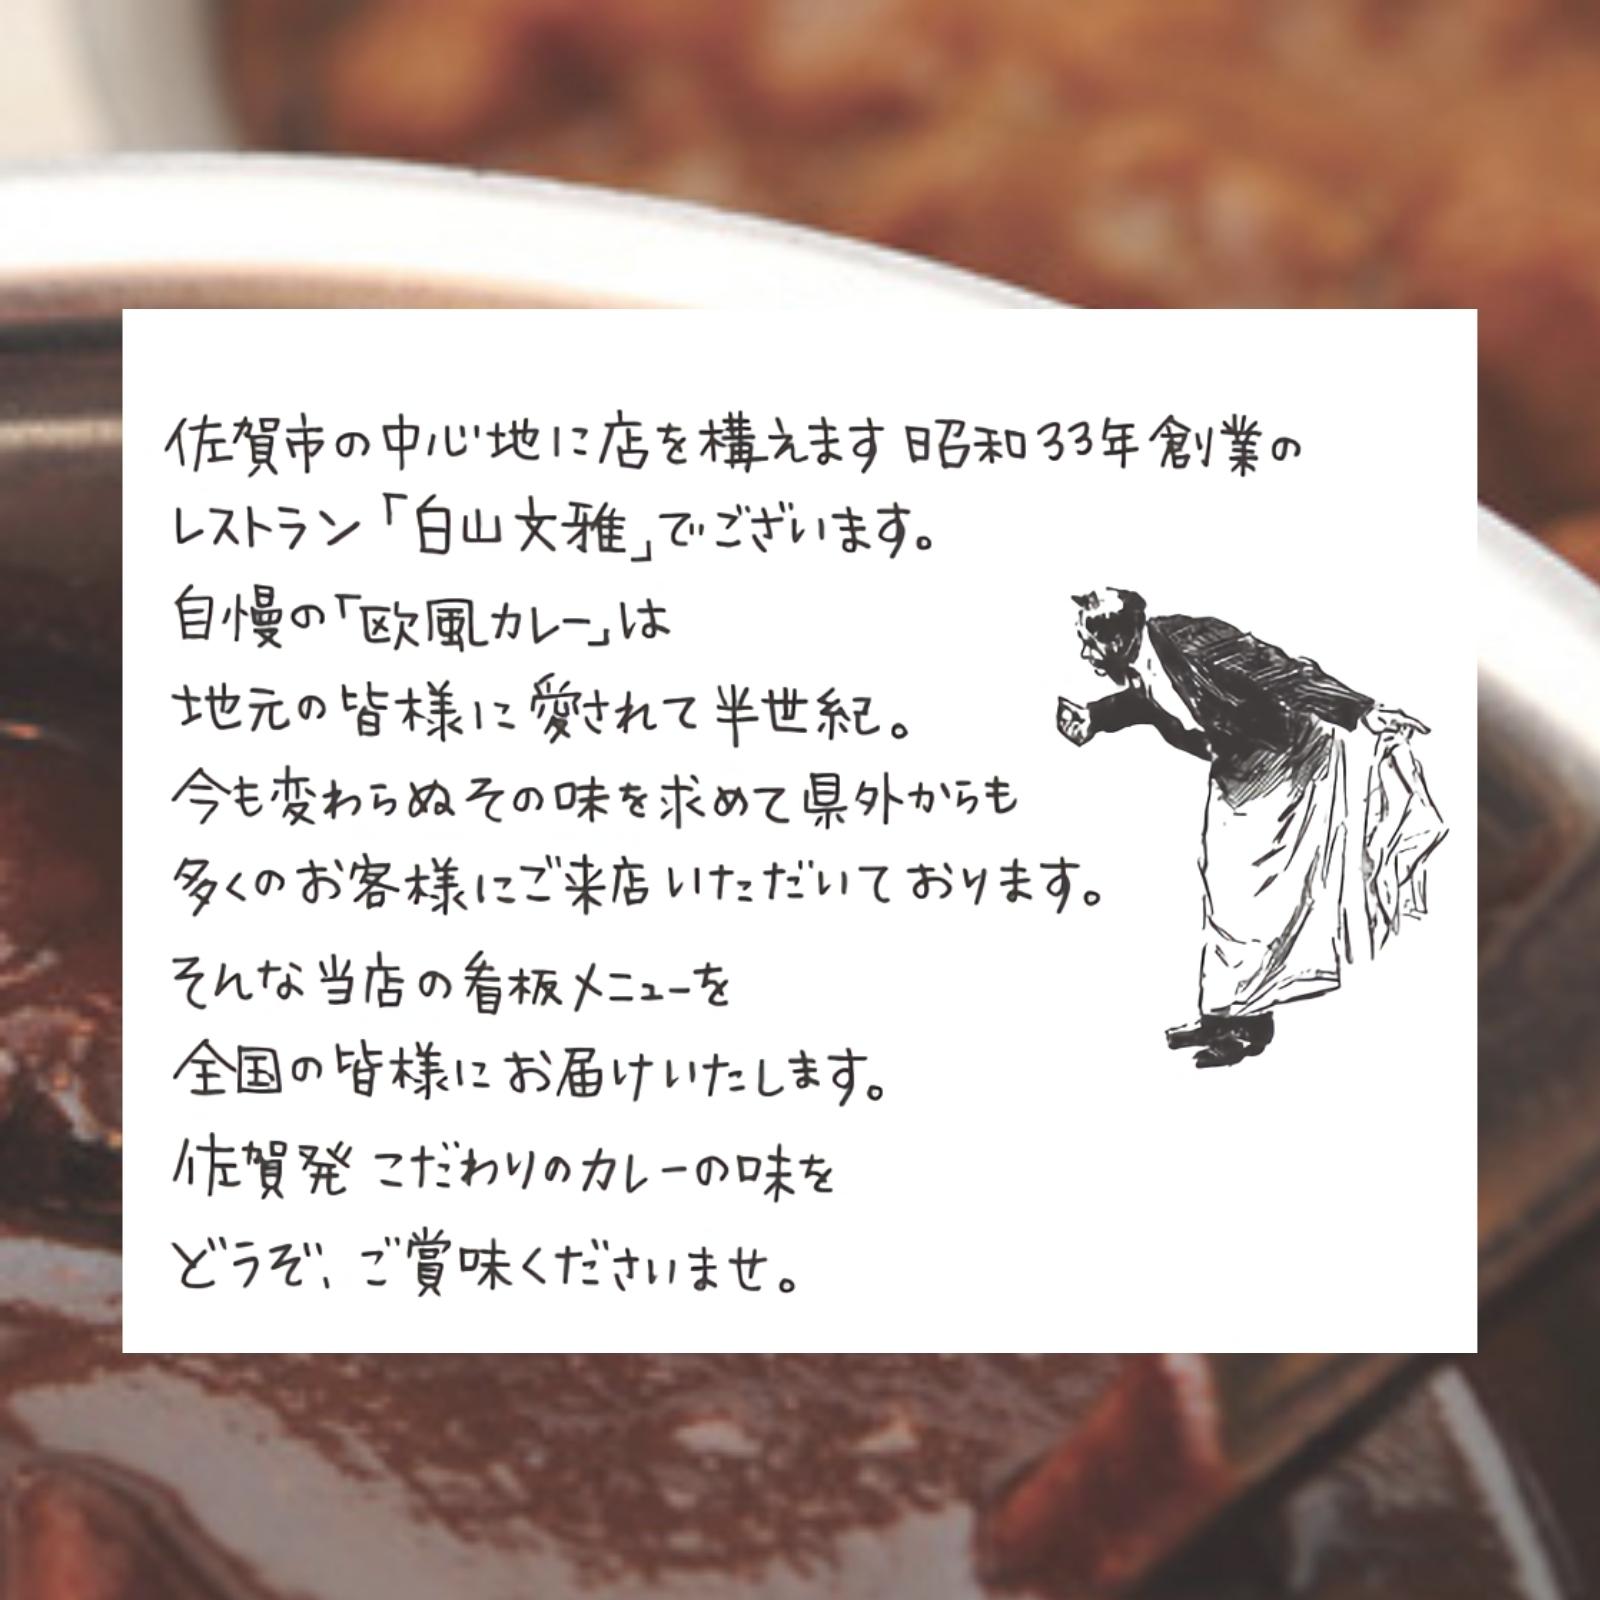 佐賀市の中心地に店を構えます 昭和33年創業の
レストラン「白山文雅」でございます。
自慢の「欧風カレー」は
地元の皆様に愛されて半世紀。
今も変わらぬその味を求めて県外からも
多くのお客様にご来店いただいております。
そんな当店の看板メニューを
全国の皆様にお届けいたします。
佐賀発 こだわりのカレーの味を
どうぞ、ご賞味くださいませ。